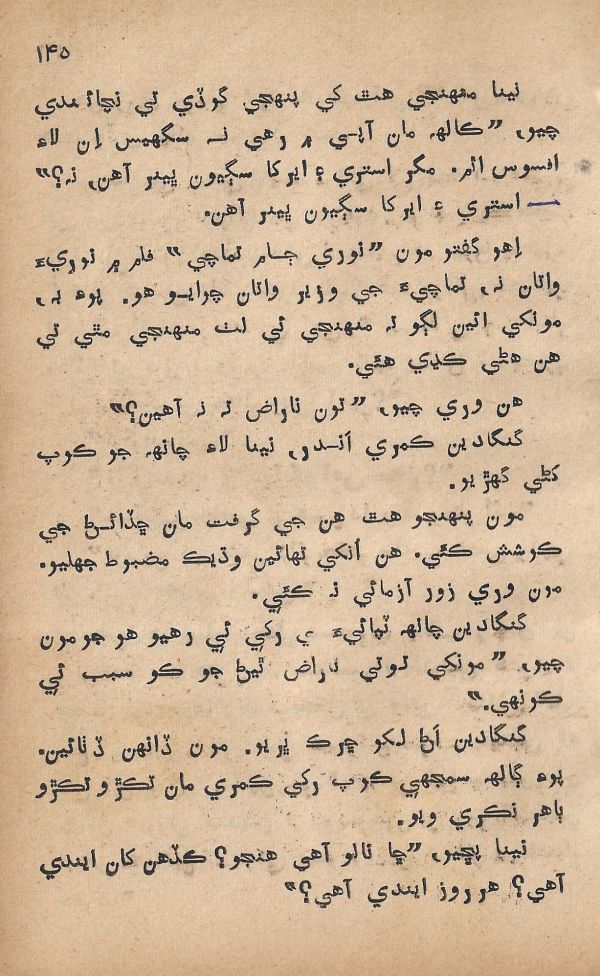 ۱۴۵
نينا منهنجي هٿ کي پنهجي گوڏي تي نچائيندي
چيو، ”ڪالهه مان آپي ۾ رهي نه سگهيس اِن لاءِ
افسوس اٿم. مگر استري ۽ ابرکا سڳيون ڀينر آهن، نه؟“
— استري ۽ ابرکا سڳيون ڀينر آهن.
اِهو گفتو مون ”نوري ڄام تماچي“ فلم ۾ نوريءَ
واتان نه، تماچيءَ جي وزير واتان چرايو هو. پوءِ به،
مونکي ائين لڳو ته منهنجي ئي لٺ منهنجي مٿي تي
هن هڻي ڪڍي هئي.
هن وري چيو، ”تون ناراض ته نه آهين؟“
گنگادين ڪمري اندر، نينا لاءِ چانهه جو ڪوپ
کڻي گهڙيو.
مون پنهنجو هٿ هن جي گرفت مان ڇڏائڻ جي
ڪوشش ڪئي. هن اُنکي تهائين وڌيڪ مضبوط جهليو.
مون وري زور آزمائي نه ڪئي.
گنگادين چانهه ٽپائيءَ ي رکي ئي رهيو هو جو مون
چيو، ”مونکي توتي ناراض ٿيڻ جو ڪو سبب ئي
ڪونهي.“
گنگادين اڻ لکو ڇرڪ ڀريو. مون ڏانهن ڏٺائين.
پوءِ ڳالهه سمجهي ڪوپ رکي ڪمري مان تڪڙو تڪڙو
ٻاهر نڪري ويو.
نينا پڇيو، ”ڇا نالو آهي هنجو؟ ڪڏهن کان ايندي
آهي؟ هر روز ايندي آهي؟“